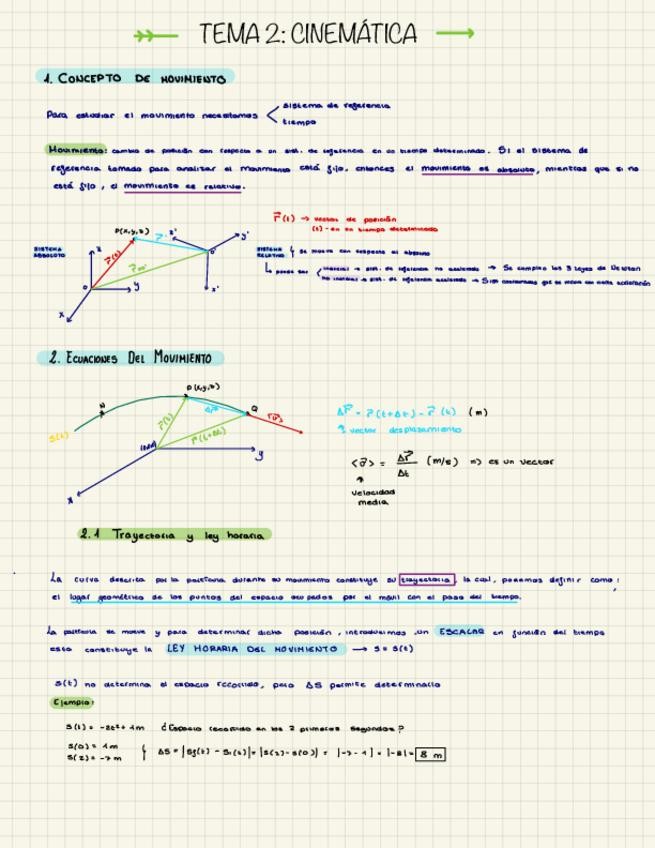 TEMA 2: CINEMÁTICA
1. CONCEPTO DE MOVIMIENTO
Para estudiar el movimiento necesitamos
sistema de referencia
tiempo
Movimiento: cambio de posición con respecto a un sist. de referencia en un tiempo determinado. Si el sistema de
referencia tomado para analizar el movimiento está fijo, entonces el movimiento es absoluto, mientras que si no
está fijo, el movimiento es relativo.
r⃗(t) → vector de posición
(t) - en un tiempo determinado
P(x,y,z)
SISTEMA ABSOLUTO
z
r⃗(t)
r⃗'
z'
y'
o'
x'
o
y
x
SISTEMA RELATIVO
se mueve con respecto al absoluto
puede ser
inercial → sist. de referencia no acelerado → Se cumplen las 3 leyes de Newton
no inercial → sist. de referencia acelerado →
2. ECUACIONES DEL MOVIMIENTO
P(x,y,z)
N
Δr⃗
Q
s(t)
r⃗(t)
r⃗(t+Δt)
y
x
Δr⃗ = r⃗(t+Δt) - r⃗(t) (m)
vector desplazamiento
<v⃗> = Δr⃗/Δt (m/s) => es un vector
velocidad
media
2.1 Trayectoria y ley horaria
La curva descrita por la partícula durante su movimiento constituye su trayectoria, la cual, podemos definir como:
el lugar geométrico de los puntos del espacio ocupados por el móvil con el paso del tiempo.
La partícula se mueve y para determinar dicha posición, introducimos un ESCALAR en función del tiempo
esto constituye la LEY HORARIA DEL MOVIMIENTO → s = s(t)
s(t) no determina el espacio recorrido, pero ΔS permite determinarlo
Ejemplo:
s(t) = -2t²+1m ¿Espacio recorrido en los 2 primeros segundos?
s(0) = 1m
s(2) = -7m
ΔS = |Sf(t) - Si(t)| = |s(2)-s(0)| = |-7-1| = |-8| = 8 m